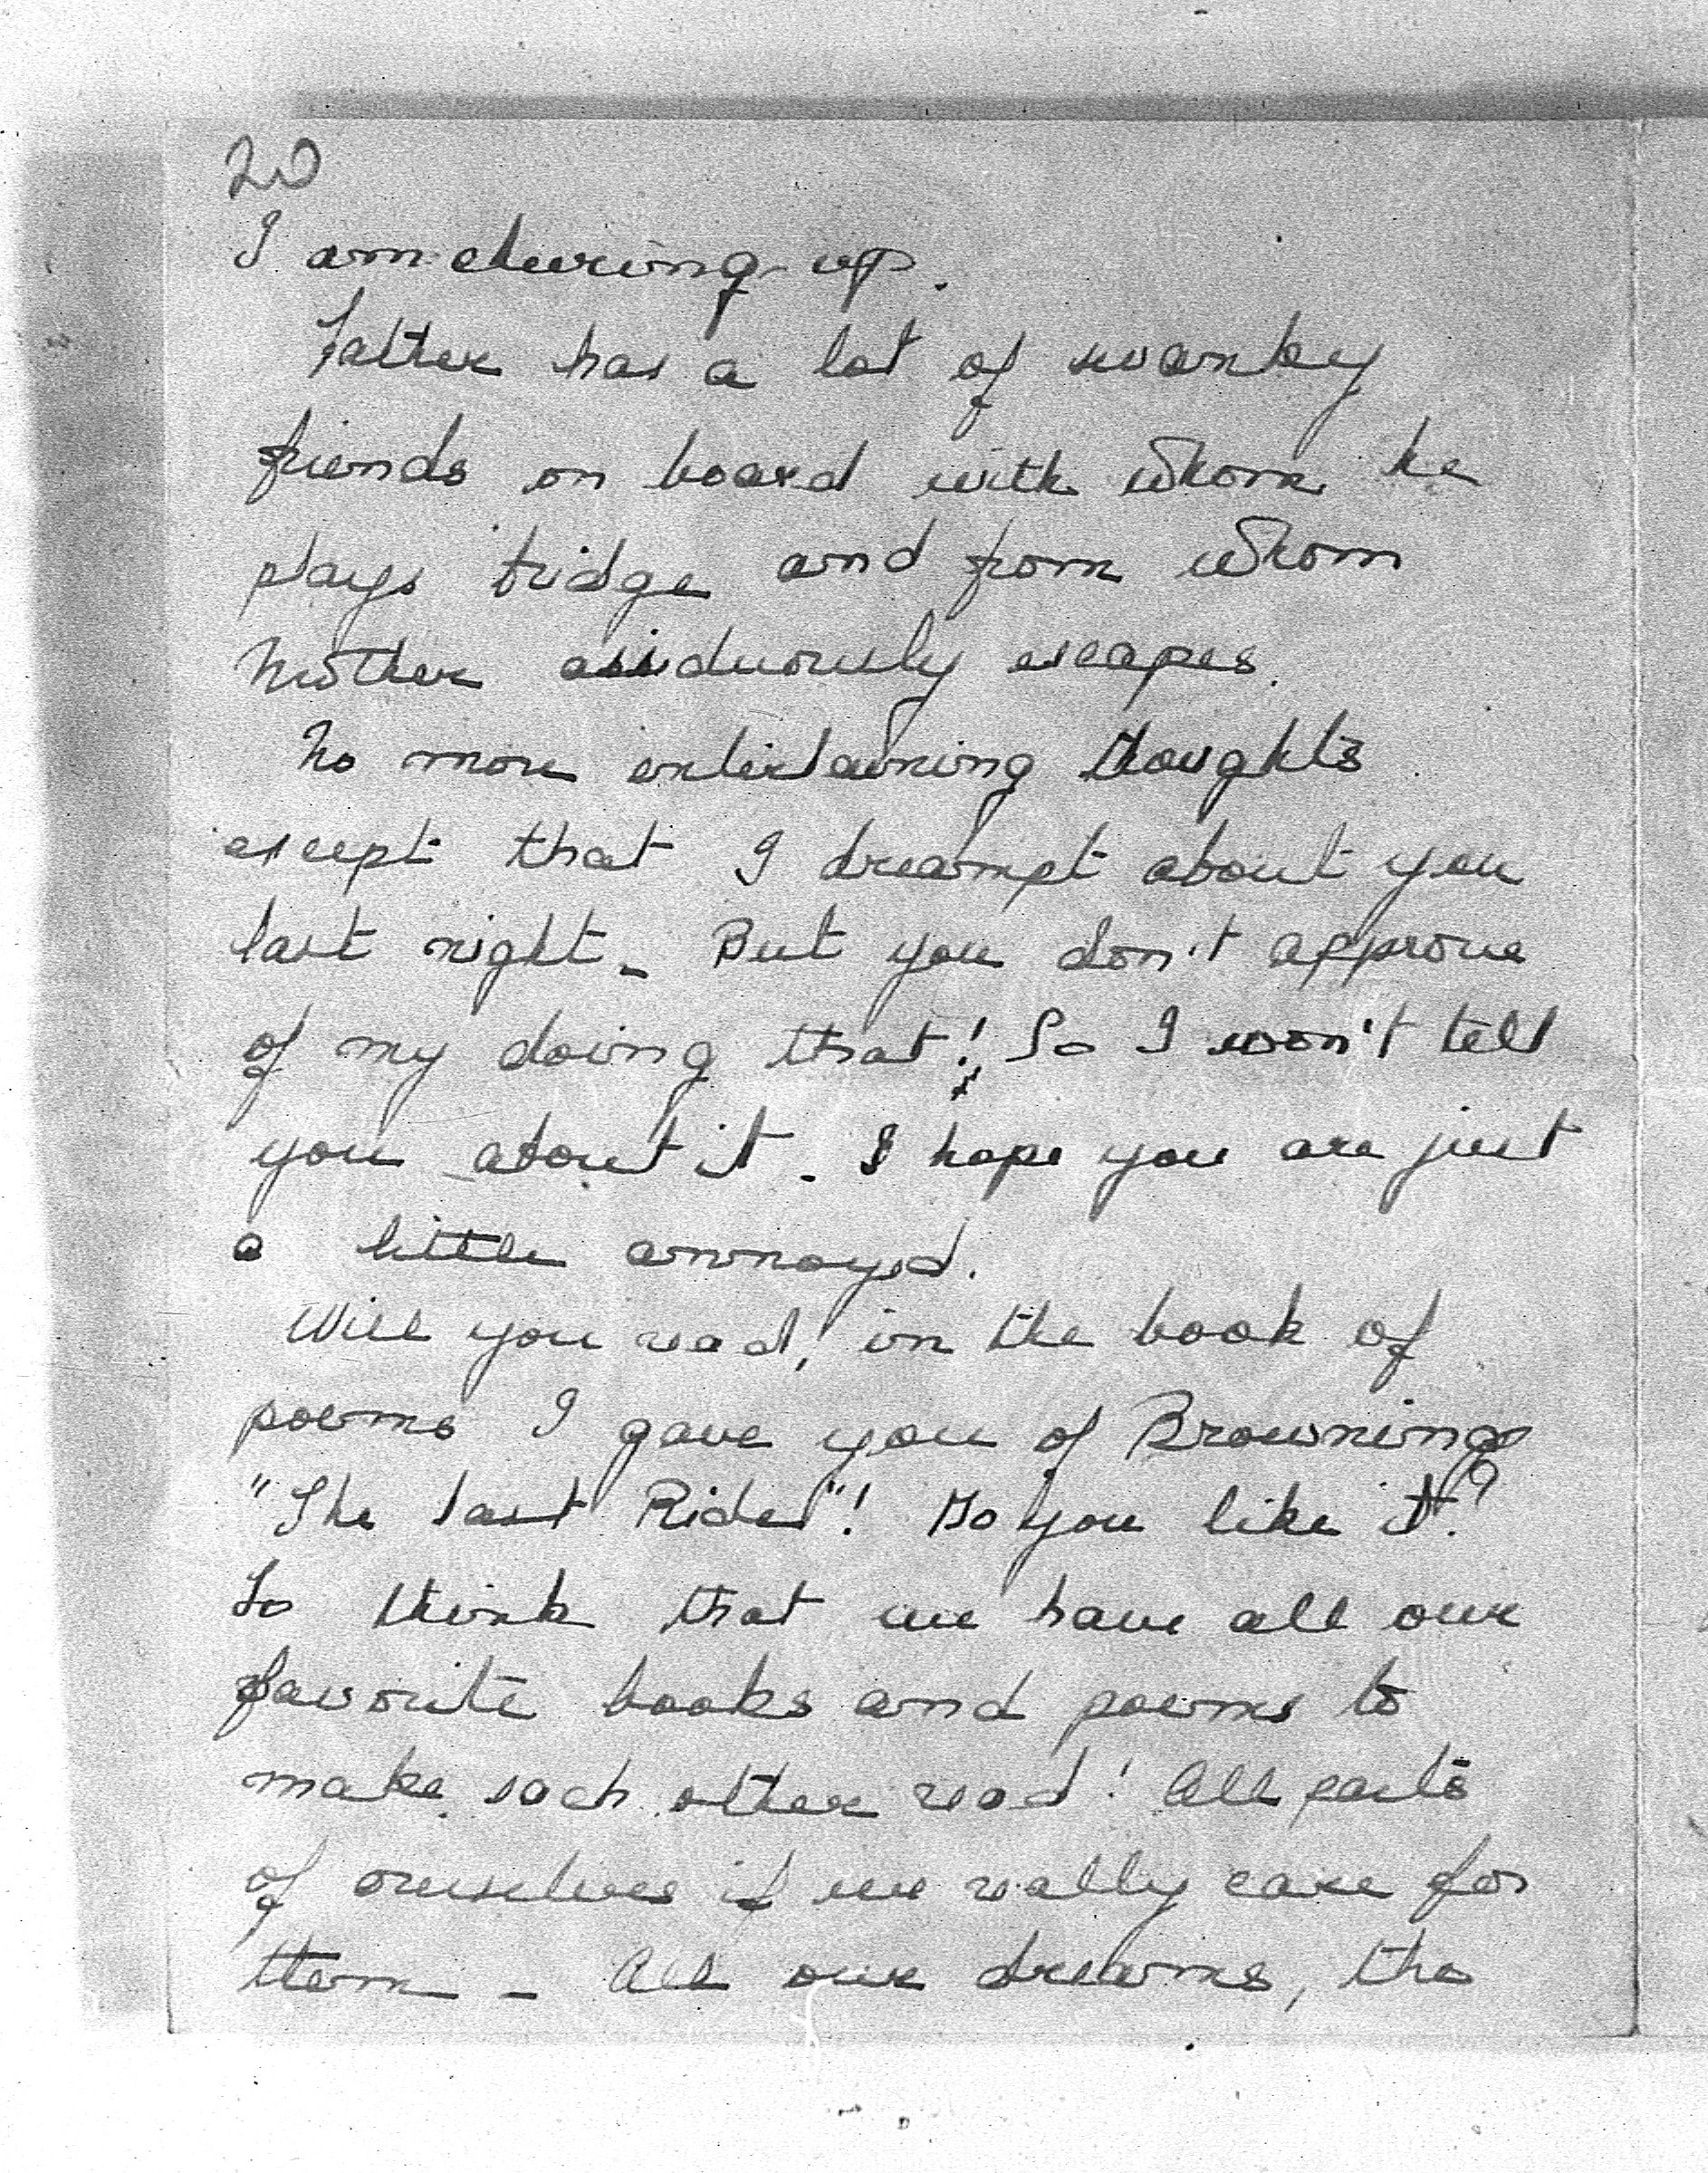 20
I am cheering up.
Father has a lot of swanky
friends on board with whom he
plays bridge and from whom
Mother assiduously escapes.
No more entertaining thoughts
except that I dreampt about you
last night. But you don't approve
of my doing that! So I won't tell
you about it. I hope you are just
a little annoyed.
Will you read, in the book of
poems I gave you of Browning
"The last Ride"! Do you like it?
To think that we have all our
favorite books and poems to
make each other read! All parts
of ourselves if we really care for
them - All our dreams, the